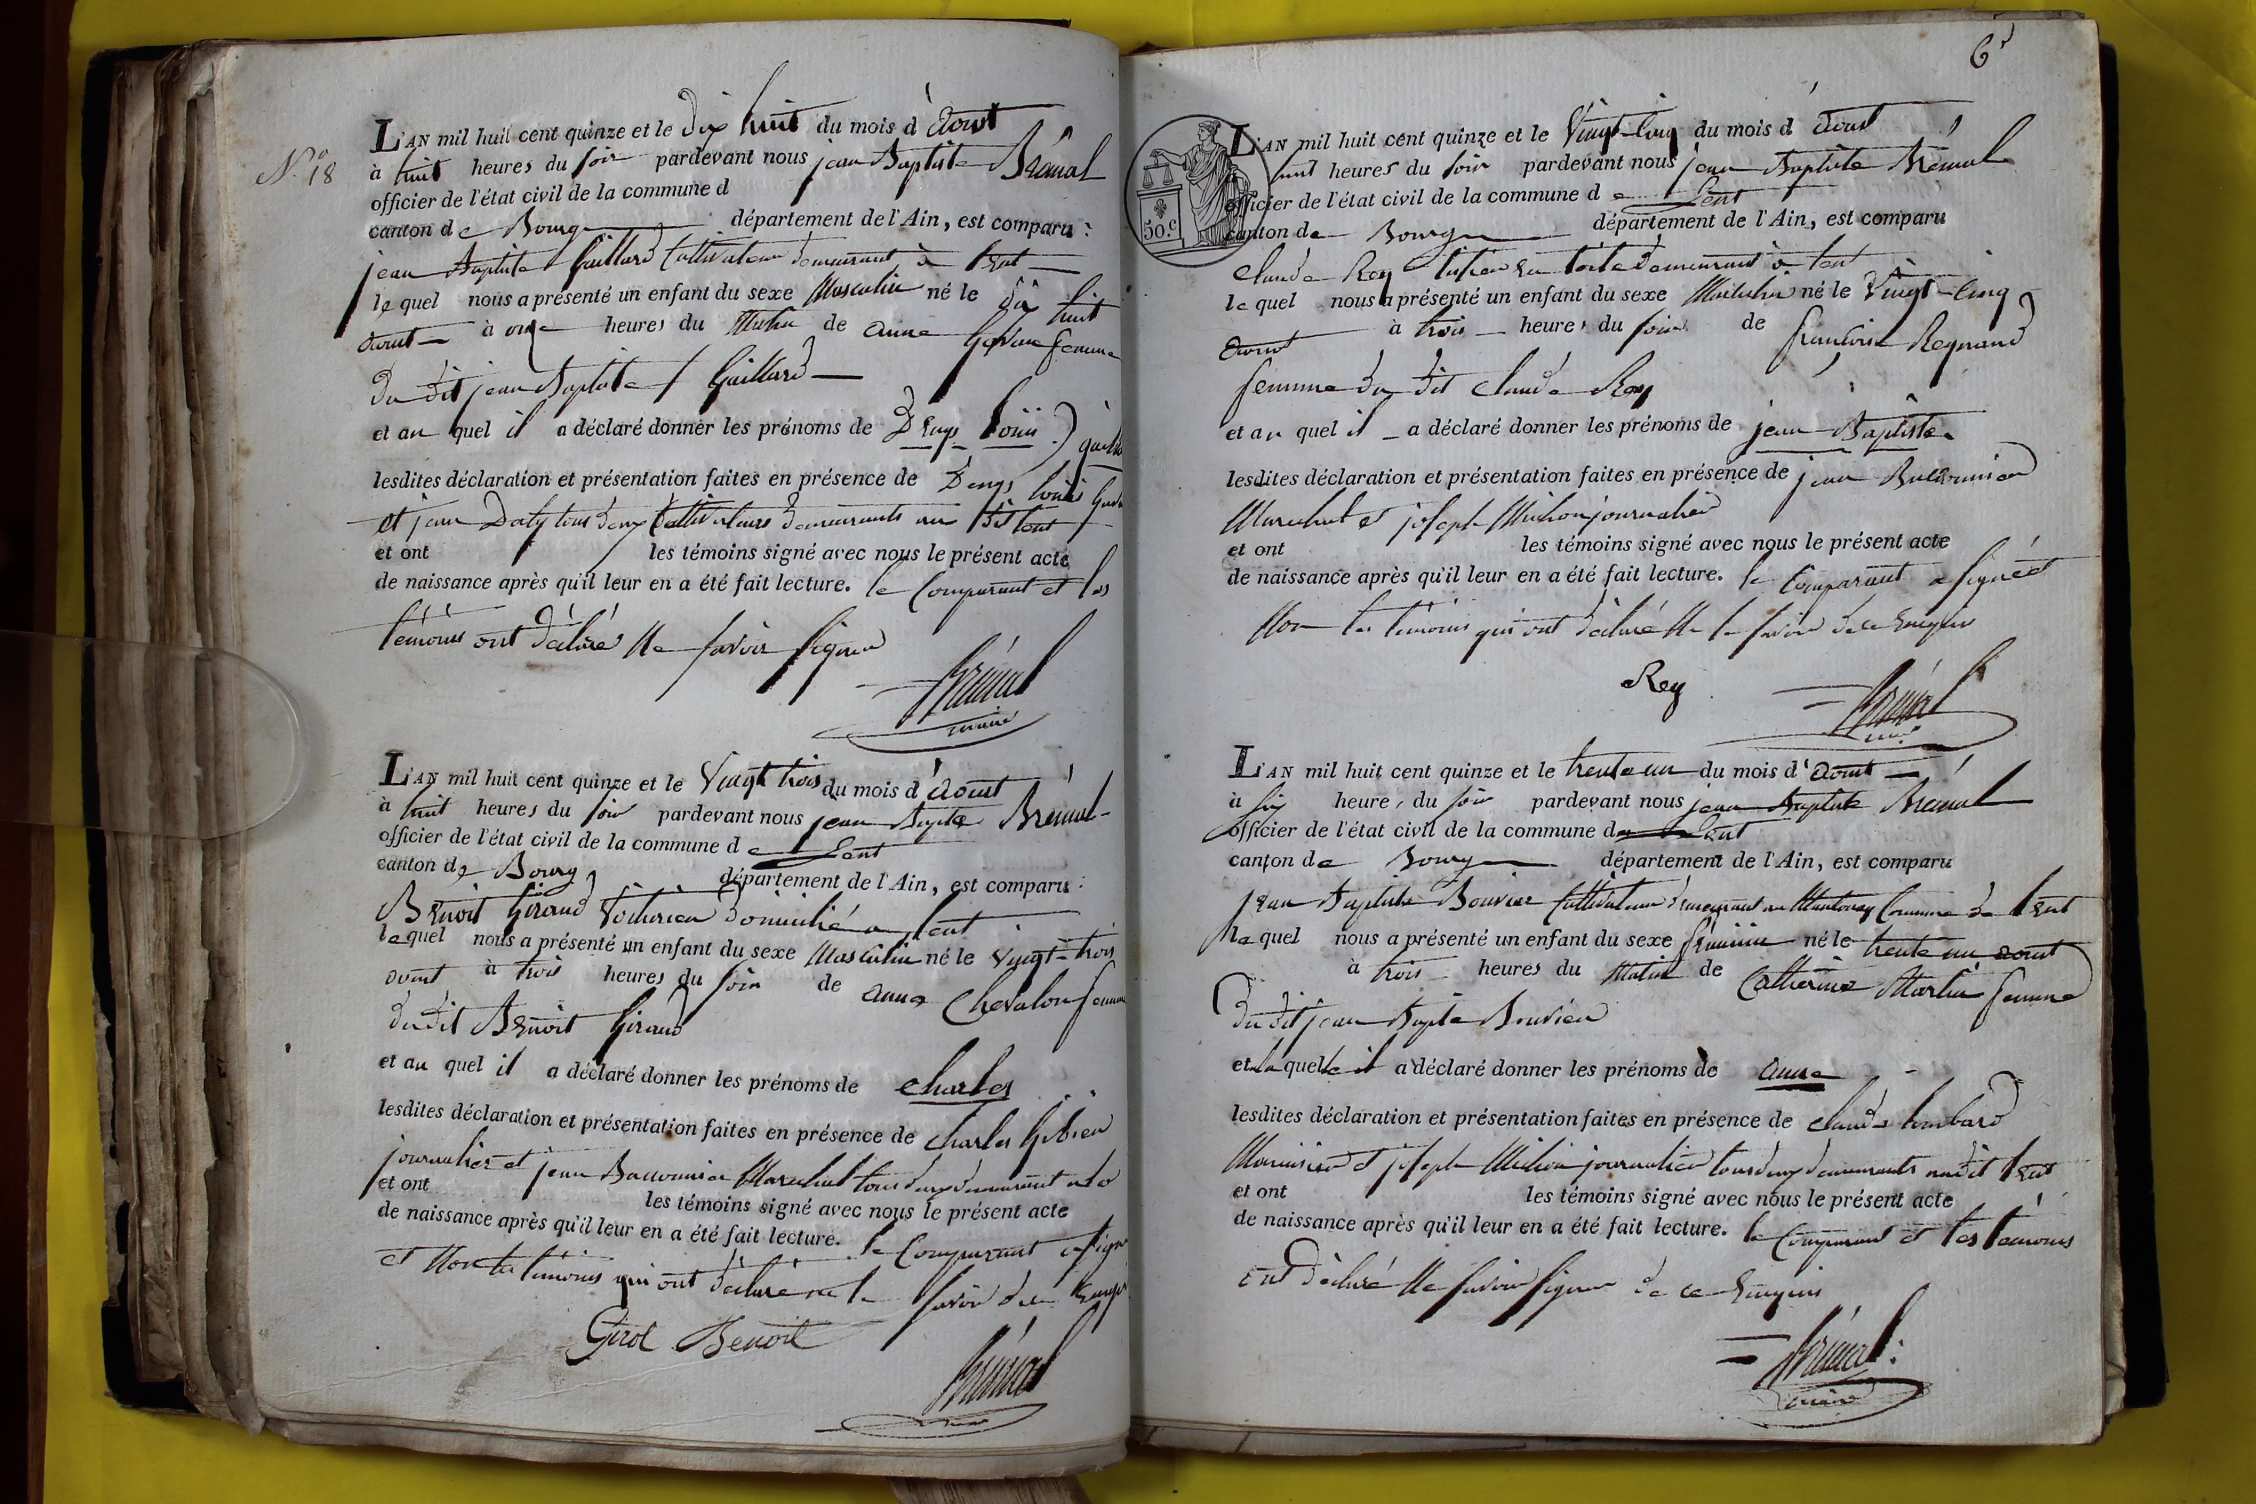 N.° 18
L'AN mil huit cent quinze et le dix huit du mois d'aout
à huit heures du soir pardevant nous jean Baptiste Brénal
officier de l'état civil de la commune d
canton de Bourg département de l'Ain, est comparu :
jean Baptiste Gaillard Cultivateur demeurant à Lent
le quel nous a présenté un enfant du sexe Masculin né le dix huit
aout à onze heures du Matin de anne femme
du dit jean Baptiste Gaillard
et au quel il a déclaré donner les prénoms de Denys Louis
lesdites déclaration et présentation faites en présence de Denys Louis
et jean tous deux Cultivateurs demeurants au dit Lent
et ont les témoins signé avec nous le présent acte
de naissance après qu'il leur en a été fait lecture. le Comparant et les
témoins ont déclaré Ne savoir signer
Brénal
maire
L'AN mil huit cent quinze et le Vingt trois du mois d'aout
à huit heures du soir pardevant nous jean Bapte Brénal
officier de l'état civil de la commune de Lent
canton de Bourg département de l'Ain, est comparu :
Benoit Giraud Voiturier domicilié a Lent
le quel nous a présenté un enfant du sexe Masculin né le Vingt-trois
aout à trois heures du soir de anne Chevalon femme
du dit Benoit Giraud
et au quel il a déclaré donner les prénoms de Charles
lesdites déclaration et présentation faites en présence de Charles
journalier et jean Marechal tous deux demeurant
et ont les témoins signé avec nous le présent acte
de naissance après qu'il leur en a été fait lecture. le Comparant a signé
et Non les témoins qui ont déclaré ne le savoir de ce
Girot Benoit
Brénal
6
50.c
L'AN mil huit cent quinze et le Vingt-cinq du mois d'aout
huit heures du soir pardevant nous jean Baptiste Brénal
officier de l'état civil de la commune de Lent
canton de Bourg département de l'Ain, est comparu
Claude Rey demeurant à Lent
le quel nous a présenté un enfant du sexe Masculin né le Vingt-cinq
aout à trois heures du soir de françoise Reynaud
femme du dit Claude Rey
et au quel il a déclaré donner les prénoms de jean-Baptiste
lesdites déclaration et présentation faites en présence de jean
Marechal et joseph Michon journalier
et ont les témoins signé avec nous le présent acte
de naissance après qu'il leur en a été fait lecture. le Comparant a signé et
Non les témoins qui ont déclaré Ne le savoir de ce enquis
Rey
Brénal
L'AN mil huit cent quinze et le trente un du mois d'aout
à six heures du soir pardevant nous jean Baptiste Brénal
officier de l'état civil de la commune de Lent
canton de Bourg département de l'Ain, est comparu
jean Baptiste Bouvier Cultivateur demeurant au Commune de Lent
la quel nous a présenté un enfant du sexe féminin né le trente un aout
à trois heures du Matin de Catherine Martin femme
du dit jean Bapte Bouvier
et à la quelle il a déclaré donner les prénoms de anne
lesdites déclaration et présentation faites en présence de Claude Lombard
et joseph Michon journalier tous deux demeurants audit Lent
et ont les témoins signé avec nous le présent acte
de naissance après qu'il leur en a été fait lecture. le Comparant et les témoins
ont déclaré Ne savoir signer de ce enquis
Brénal
maire